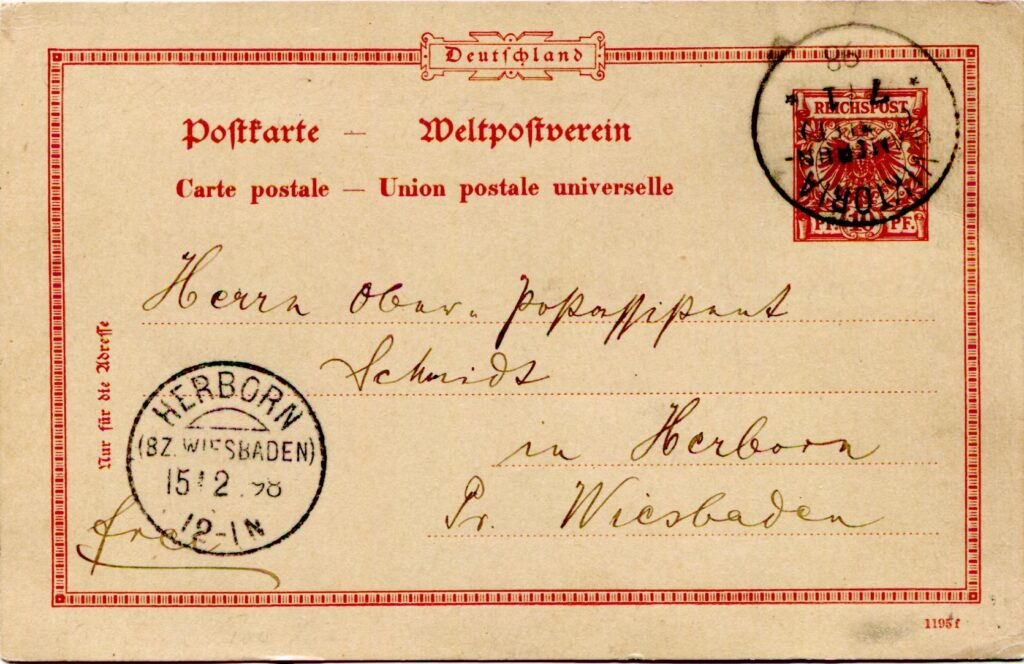 Deutschland
Postkarte — Weltpostverein
Carte postale — Union postale universelle
REICHSPOST
PF. 10 PF.
VIKTORIA
7 1
98
Herrn Ober-Postassistent
Schmidt
in Herborn
Pr. Wiesbaden
Nur für die Adresse
HERBORN
(BZ. WIESBADEN)
15 2 98
12-1N
frei
1195f